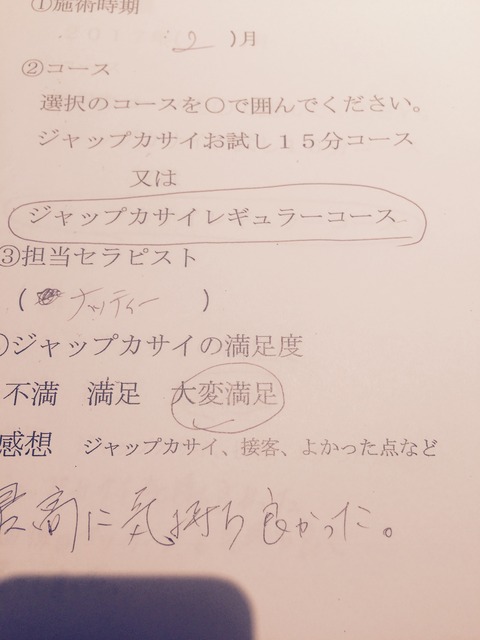 ①施術時期
2 )月
②コース
選択のコースを〇で囲んでください。
ジャップカサイお試し15分コース
又は
ジャップカサイレギュラーコース
③担当セラピスト
( ナッティー )
ジャップカサイの満足度
不満 満足 大変満足
感想 ジャップカサイ、接客、よかった点など
最高に気持ち良かった。